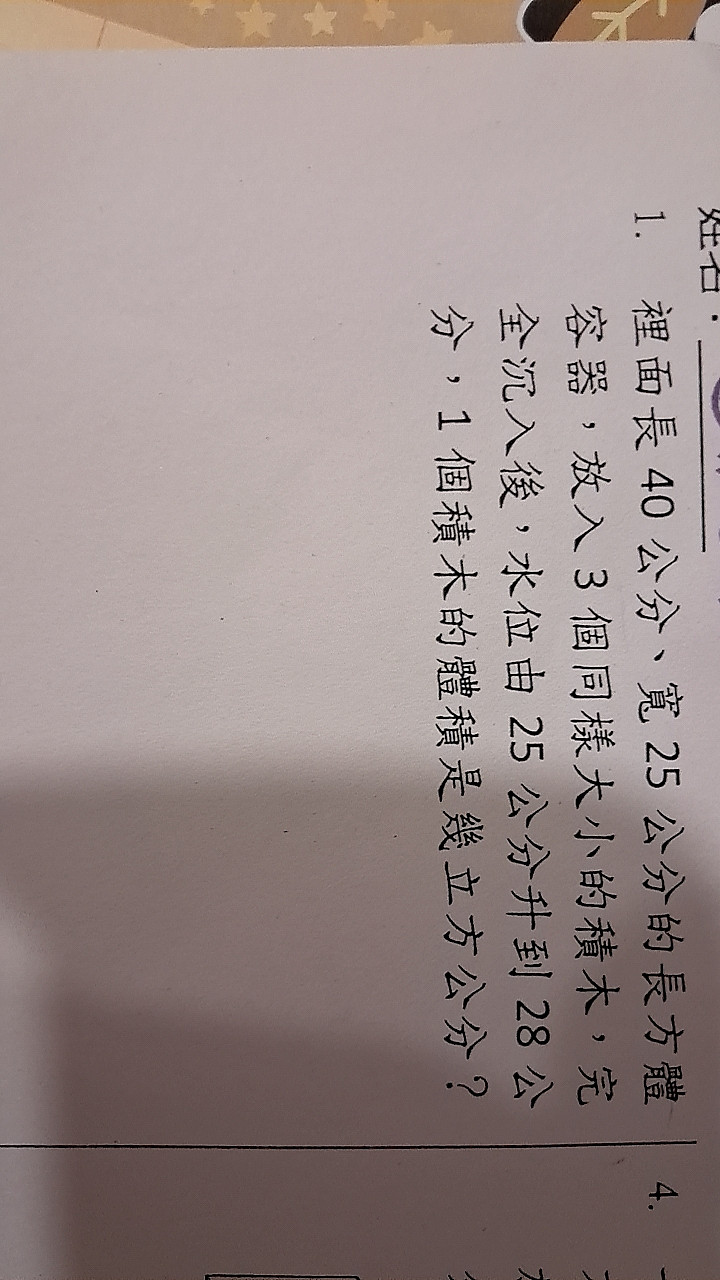 姓名：
1. 裡面長 40 公分、寬 25 公分的長方體
容器，放入 3 個同樣大小的積木，完
全沉入後，水位由 25 公分升到 28 公
分，1 個積木的體積是幾立方公分？
4.